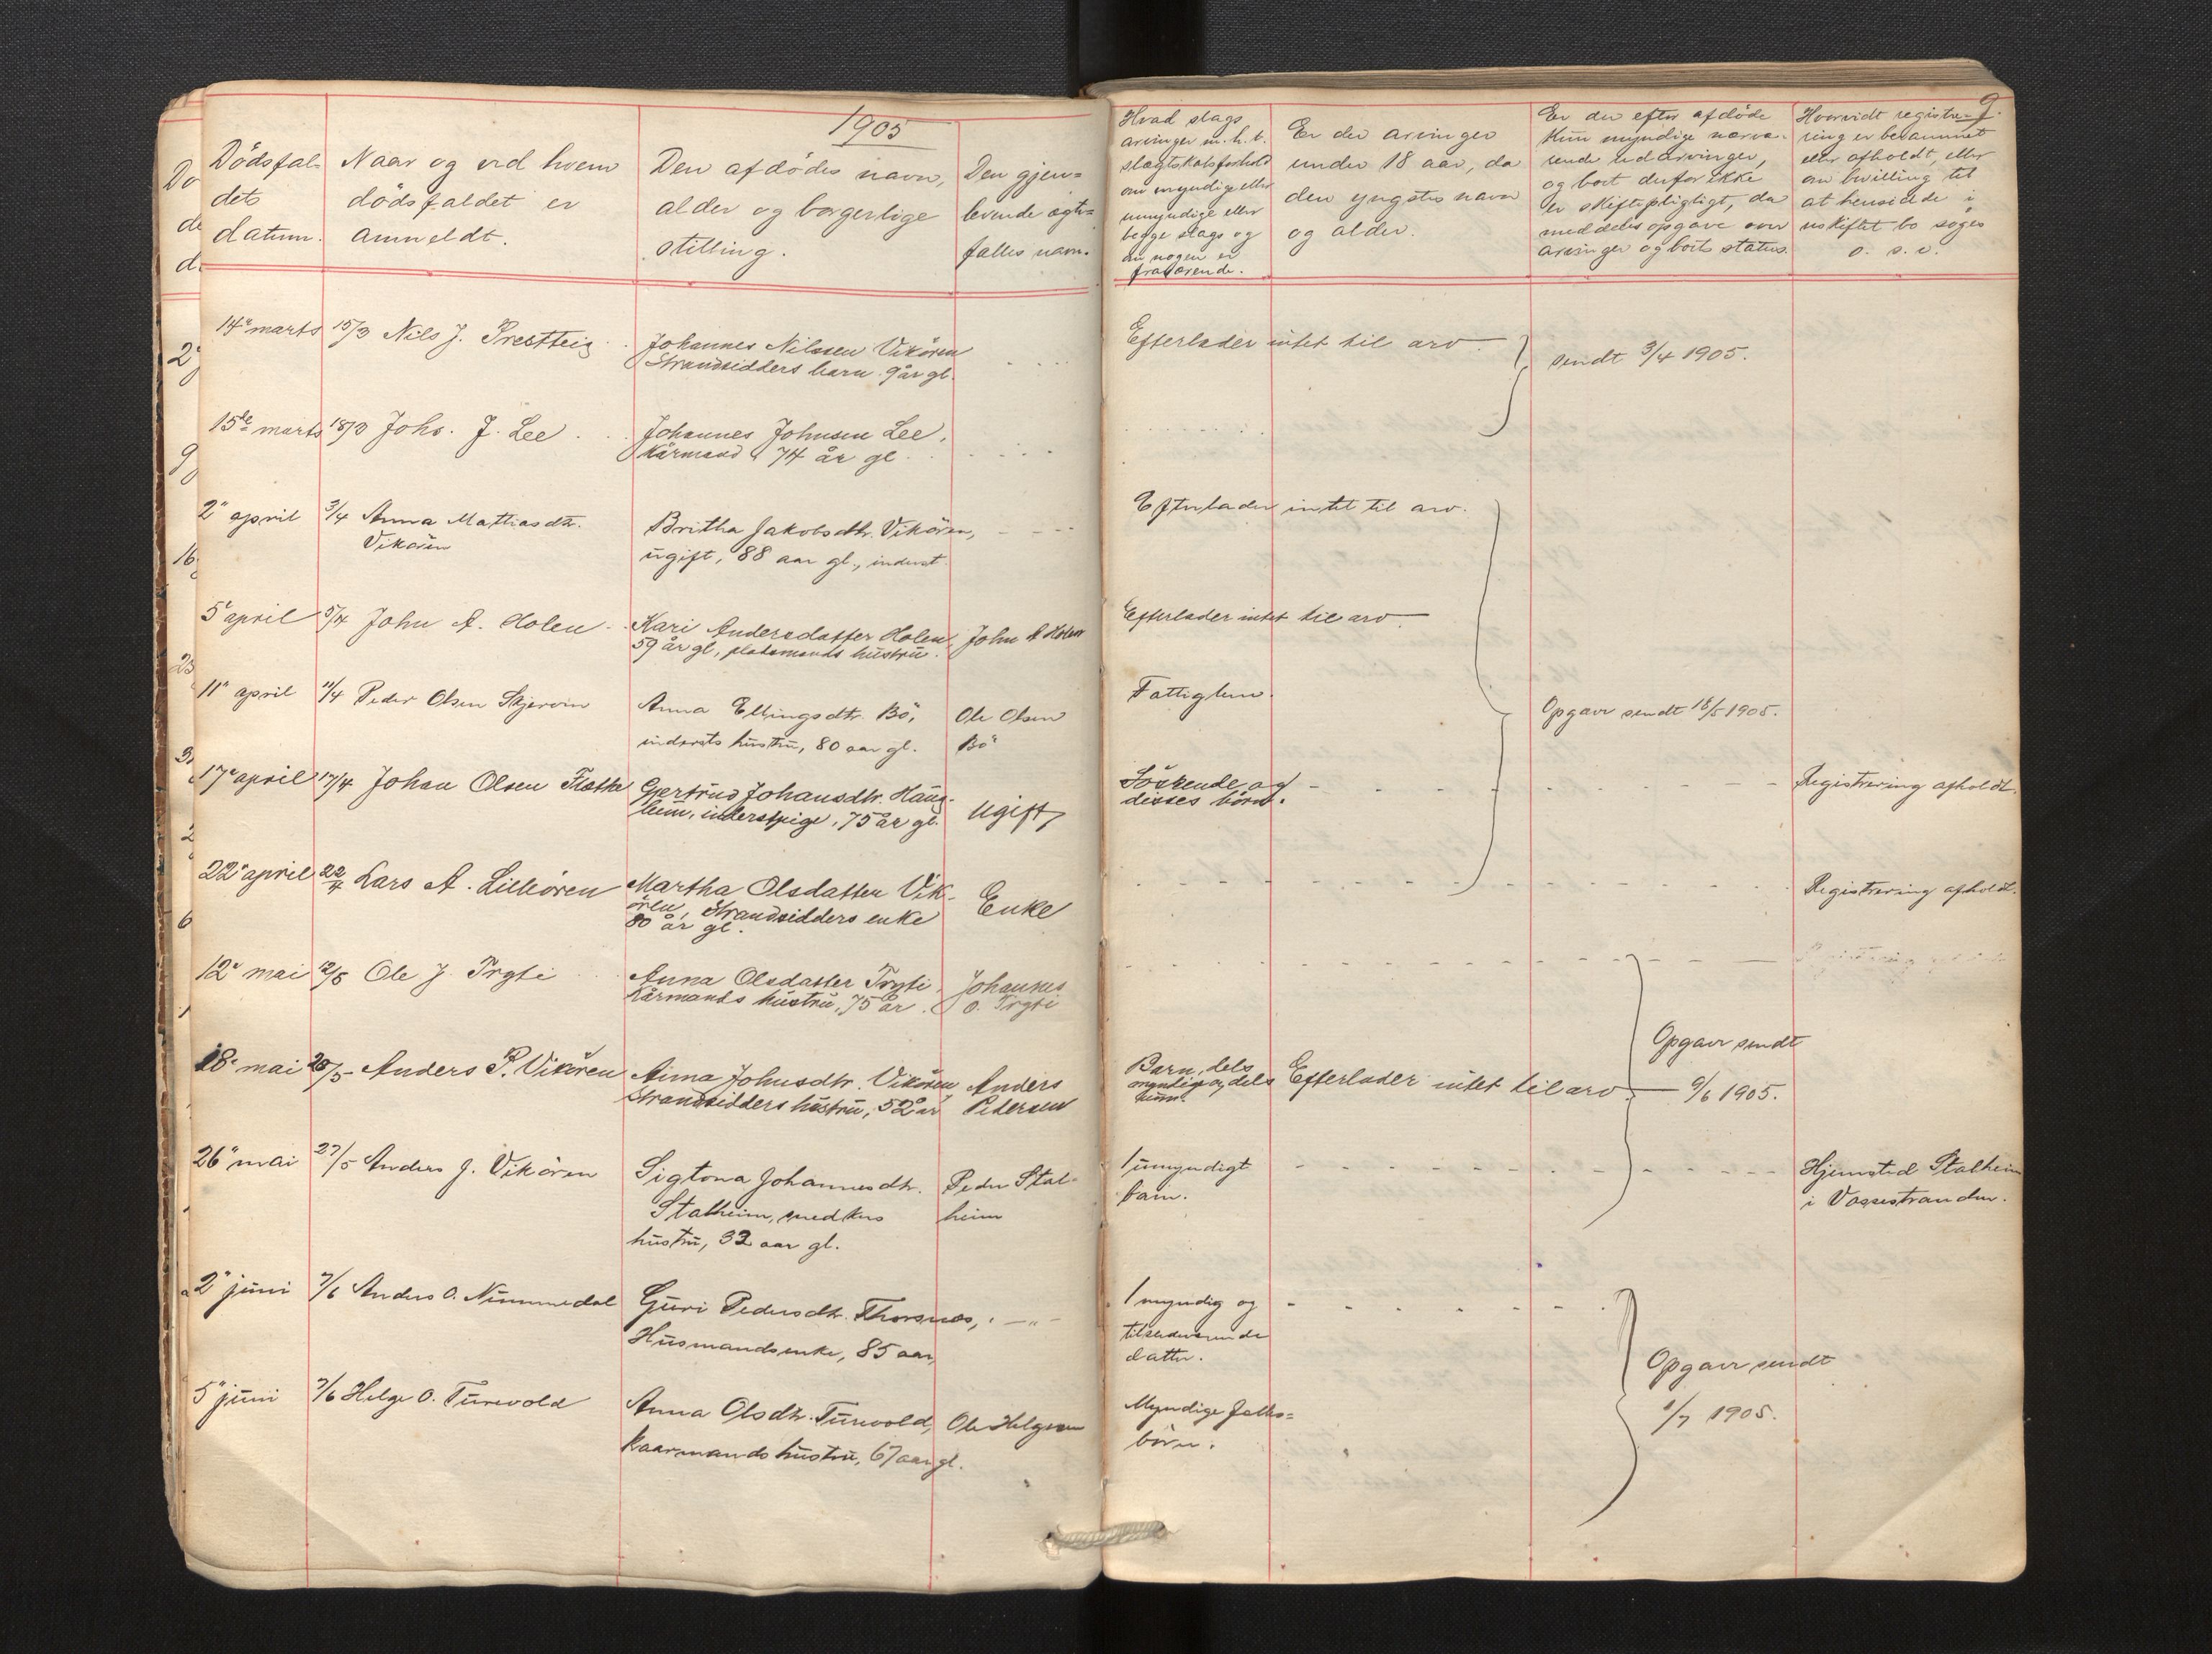 1905
9.
Dödsfal-
dets
datum.
Naar og ved hvem
dödsfaldet er
anmeldt.
Den afdödes navn,
alder og borgerlige
stilling.
Den gjen-
levende ægte-
fælles navn.
Hvad slags
arvinger m. h. t.
slægtskabsforhold
om myndige eller
umyndige eller
begge slags og
om nogen er
fraværende.
Er der arvinger
under 18 aar, da
den yngstes navn
og alder.
Er der efter afdöde
kun myndige nærvæ-
rende udarvinger,
og boet derfor ikke
er skiftepligtigt, da
meddeles opgave over
arvinger og boets status.
Hvorvidt registre-
ring er berammet
eller afholdt, eller
om bevilling til
at hensidde i
uskiftet bo söges
o. s. v.
14de marts 15/3 Nils J. Prestteig
Johannes Nilssen Vikören
Strandsidders barn 9 år gl.
Efterlader intet til arv
sendt 3/4 1905.
15de marts 18/3 Johs. J. Lee
Johannes Johnsen Lee,
Kårmand 74 år gl
2" april 3/4 Anna Mathiasdtr.
Vikören
Britha Jakobsdtr. Vikören,
ugift, 88 aar gl., inderst
Efterlader intet til arv.
5" april 5/4 John A. Holen
Kari Andersdatter Holen
59 år gl, pladsmands hustru.
John A Holen
Efterlader intet til arv.
11" april 11/4 Peder Olsen Skjervin
Anna Ellingsdtr. Bö,
indersts hustru, 80 aar gl.
Ole Olsen
Bö
Fattiglem.
Opgave sendt 18/5 1905.
17" april 17/4 Johan Olsen Flatke
Gjertrud Johansdtr. Haug-
leim, inderstpige, 75 år gl.
Ugift
Söskende og
disses börn.
Registrering afholdt.
22" april 22/4 Lars A. Lilleören
Martha Olsdatter Vik-
ören, Strandsidders enke
80 år gl.
Enke
Registrering afholdt.
12" mai 12/5 Ole J. Trygti
Anna Olsdatter Trygti
Kårmands hustru, 75 år
Johannes
O. Trygti
18" mai 20/5 Anders P. Vikören
Anna Johnsdtr. Vikören
Strandsidders hustru, 52 år
Anders
Pedersen
Barn, dels
myndige og dels
Efterlader intet til arv
Opgave sendt
9/6 1905.
26" mai 27/5 Anders J. Vikören
Sigtona Johannesdtr.
Stalheim, snedkers
hustru, 32 aar gl.
Peder Stal-
heim
1 umyndigt
barn.
Hjemsted Stalheim
i Vossestranden.
2" juni 7/6 Anders O. Nummedal
Guri Pedersdtr. Thorsnes,
Husmandsenke, 85 aar
1 myndig og
tilstedeværende
datter.
Opgave sendt
1/7 1905.
5" juni 7/6 Helge O. Turvold
Anna Olsdtr. Turvold,
Kaarmands hustru, 67 aar gl.
Ole Helgesen
Myndige fælles-
börn.